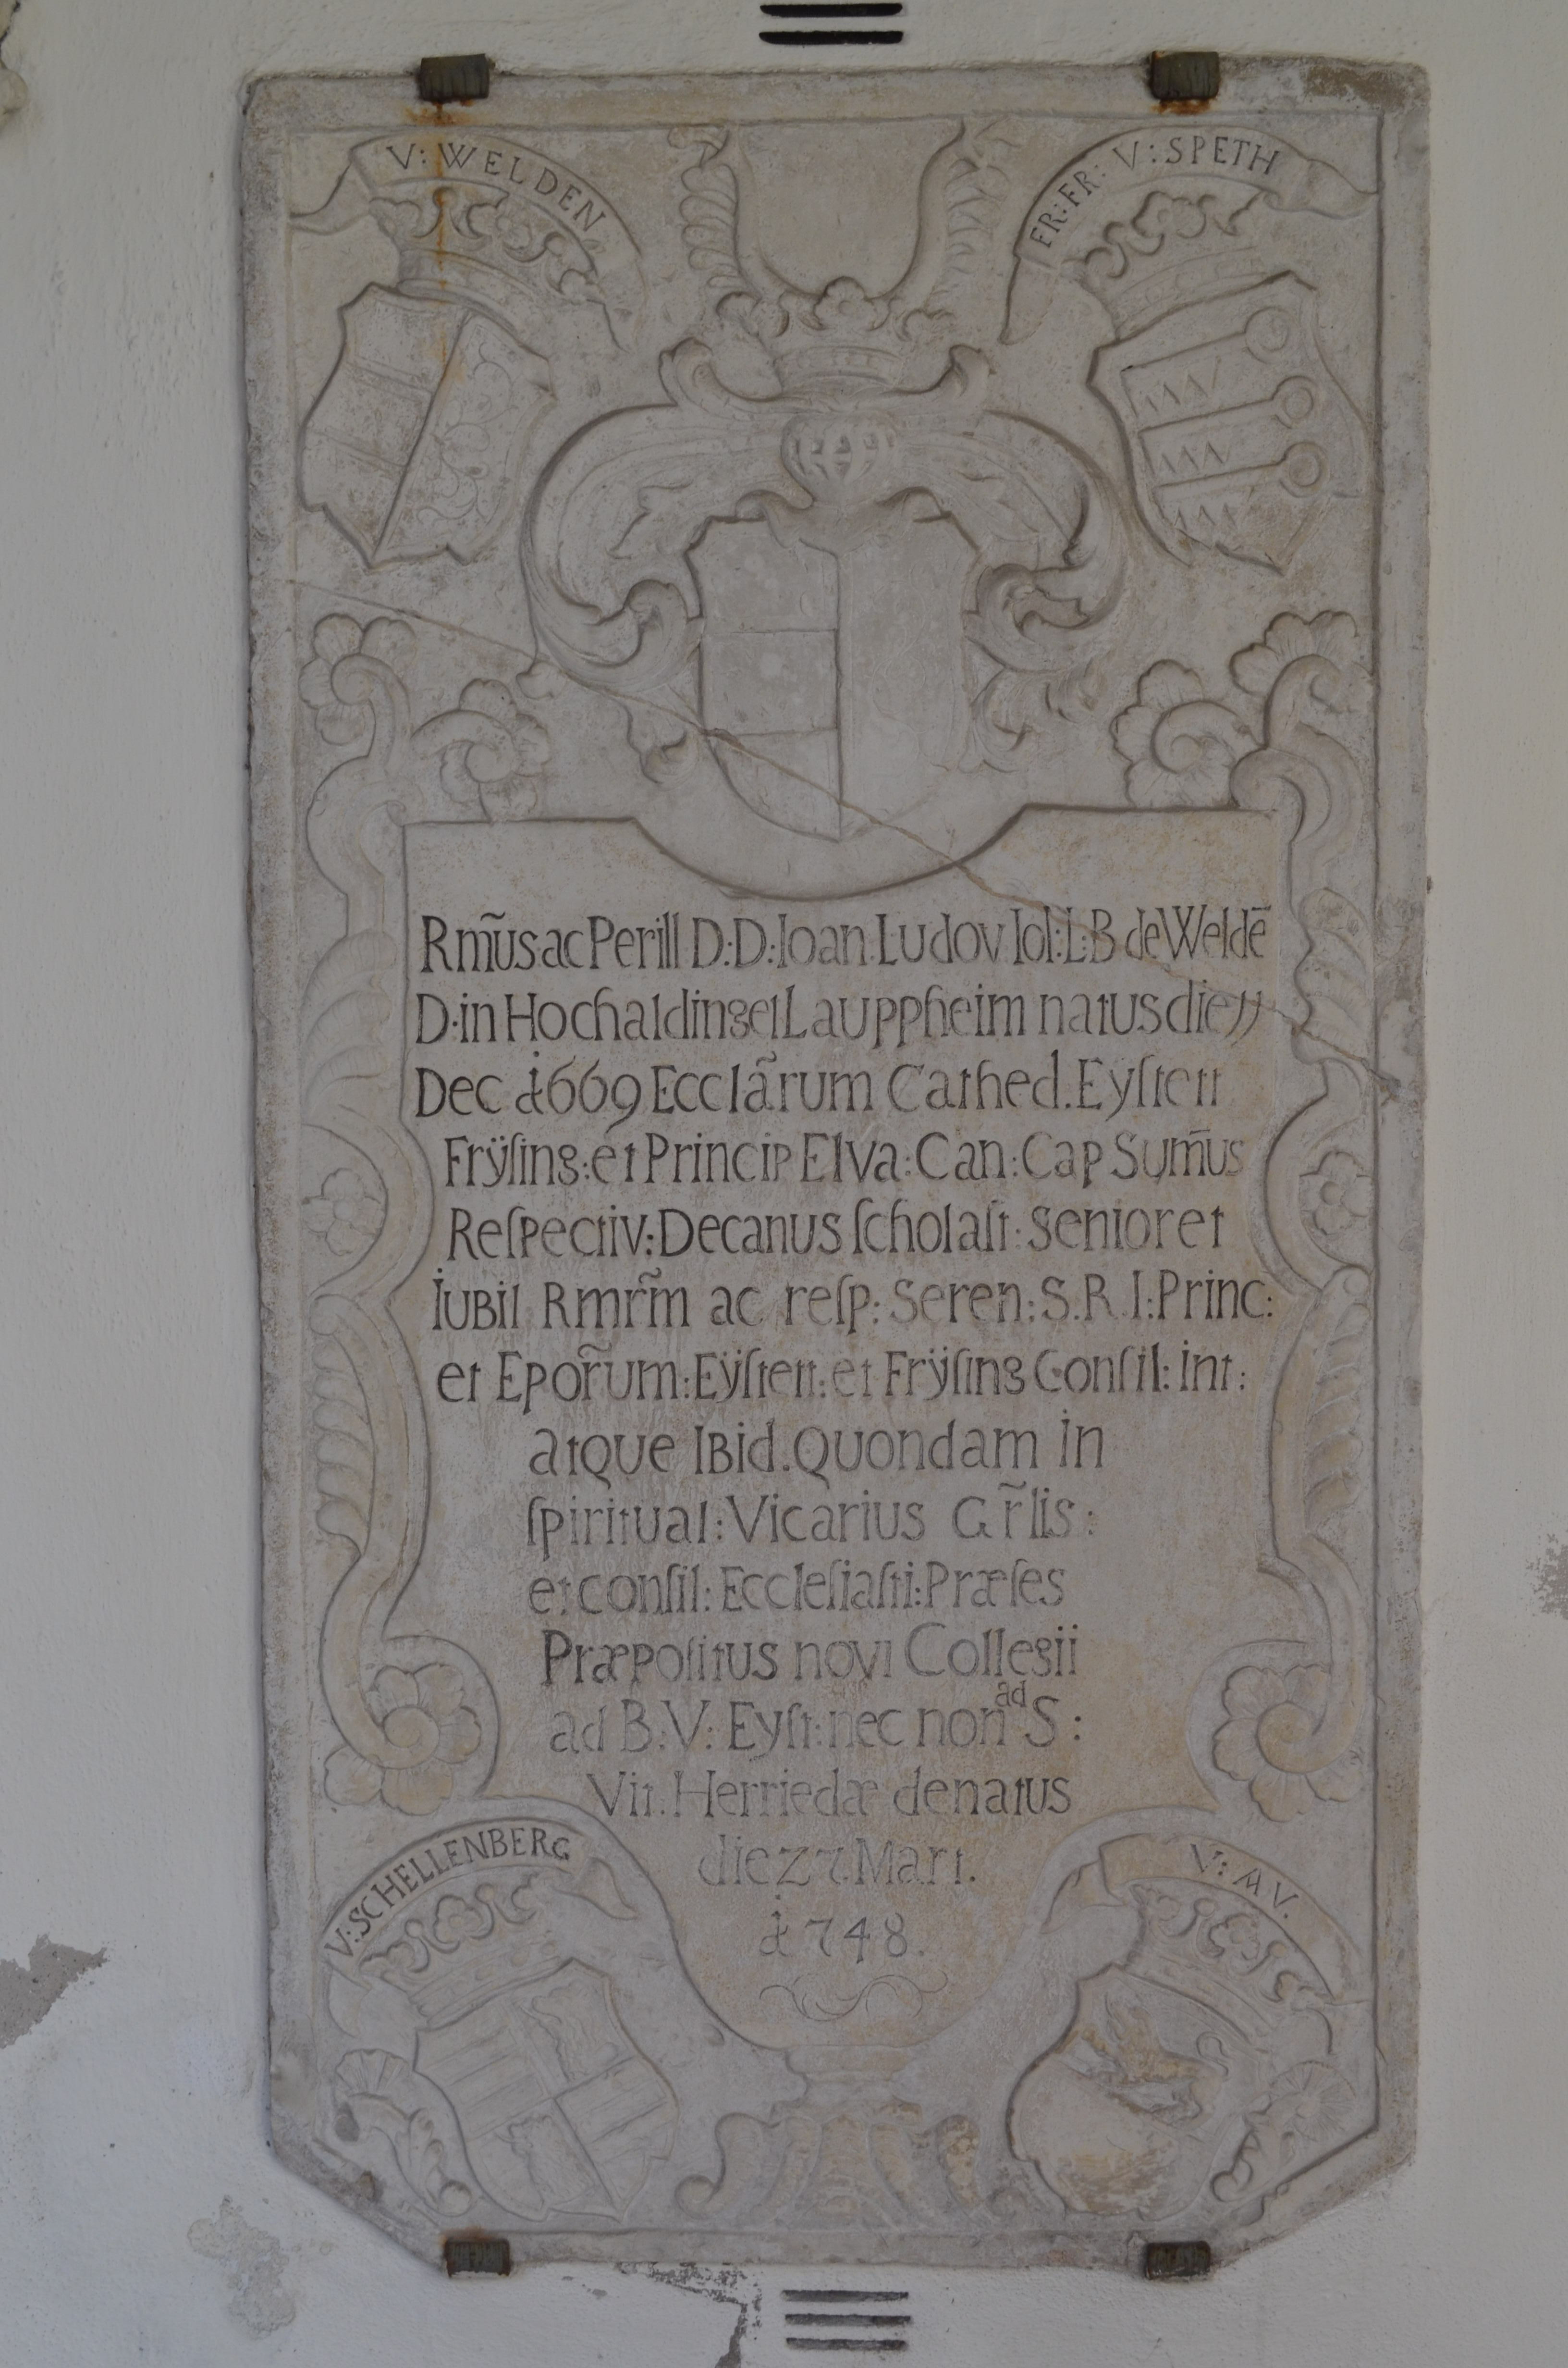 V: WELDEN
FR: FR: V: SPETH
Rm̃us ac Perill D: D: Ioan: Ludov Ioſ: L: B de Weldē
D: in Hochalding et Lauppheim natus die 11
Dec ȧ 1669 Ecclãrum Cathed. Eyſtett
Frÿſing: et Princip Elva: Can: Cap Sum̃us
Reſpectiv: Decanus ſcholaſt: Senior et
Iubil Rmr̃m ac reſp: Seren: S. R. I: Princ:
et Epor̃um: Eÿſtett: et Frÿſing Conſil: int:
atque Ibid. Quondam in
ſpiritual: Vicarius Gr̃lis:
et conſil: Eccleſiaſti: Præſes
Præpoſitus novi Collegii
ad B: V: Eyſt: nec non ad S:
Vit. Herriedæ denatus
die 27. Mart.
ȧ 1748.
V: SCHELLENBERG
V: AV.